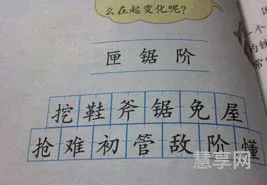 么在起变化呢?
匣 锯 阶
挖 鞋 斧 锯 免 屋
抢 难 初 管 敌 阶 懂
慧享网